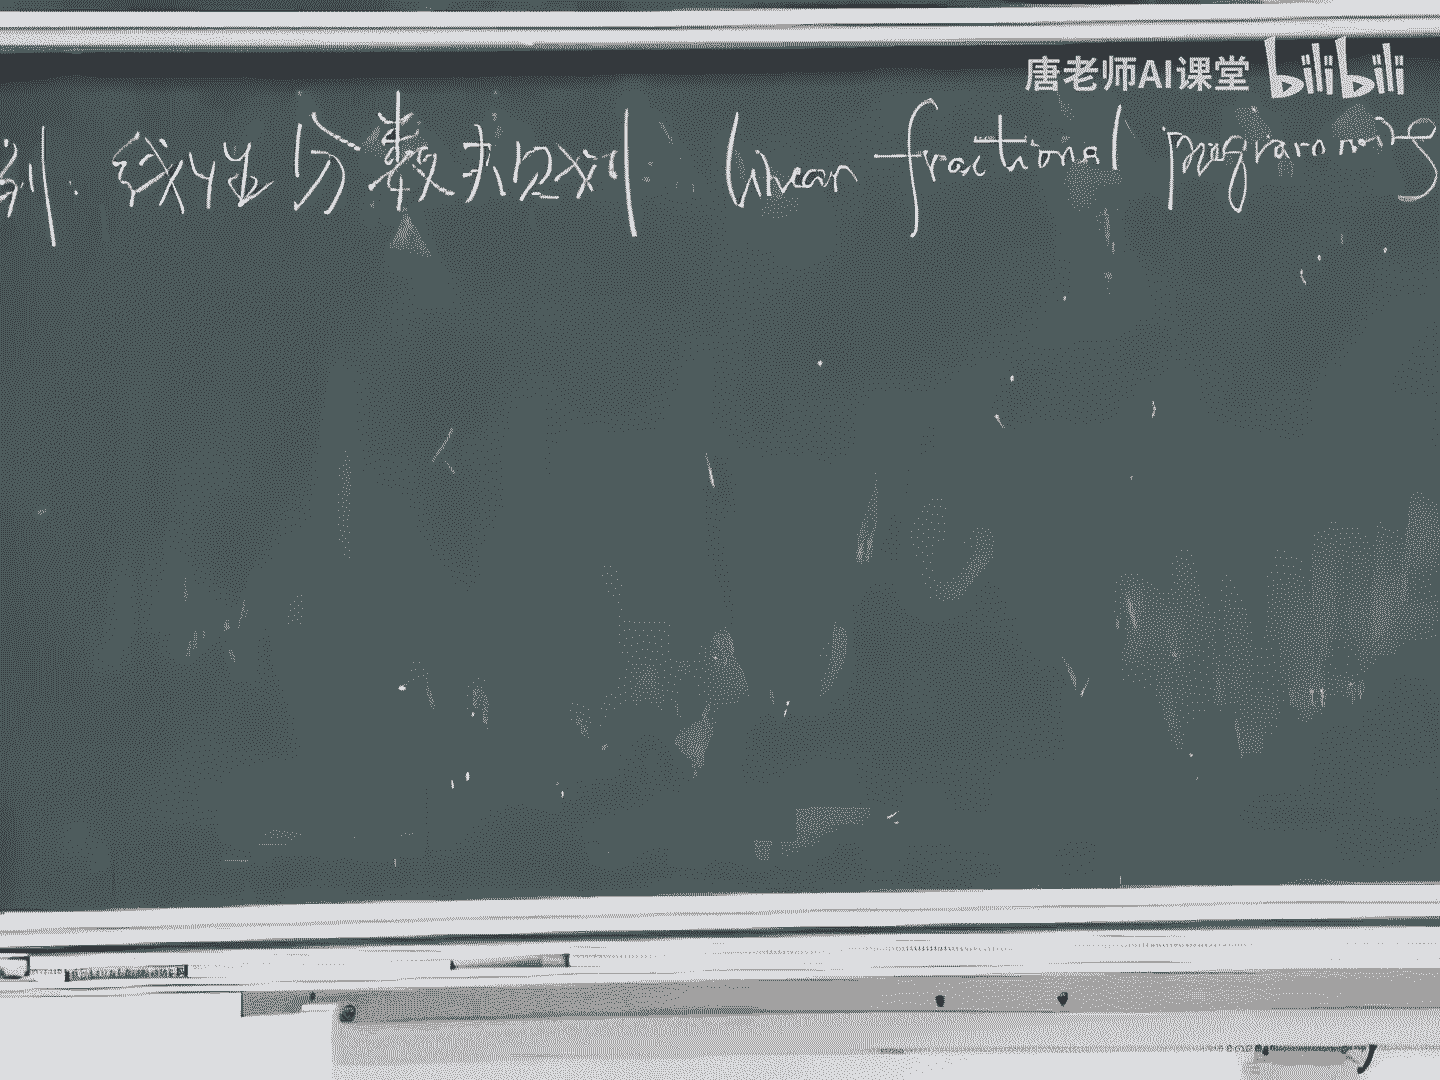 唐老师AI课堂 bilibili
例. 线性分数规划 linear fractional programming